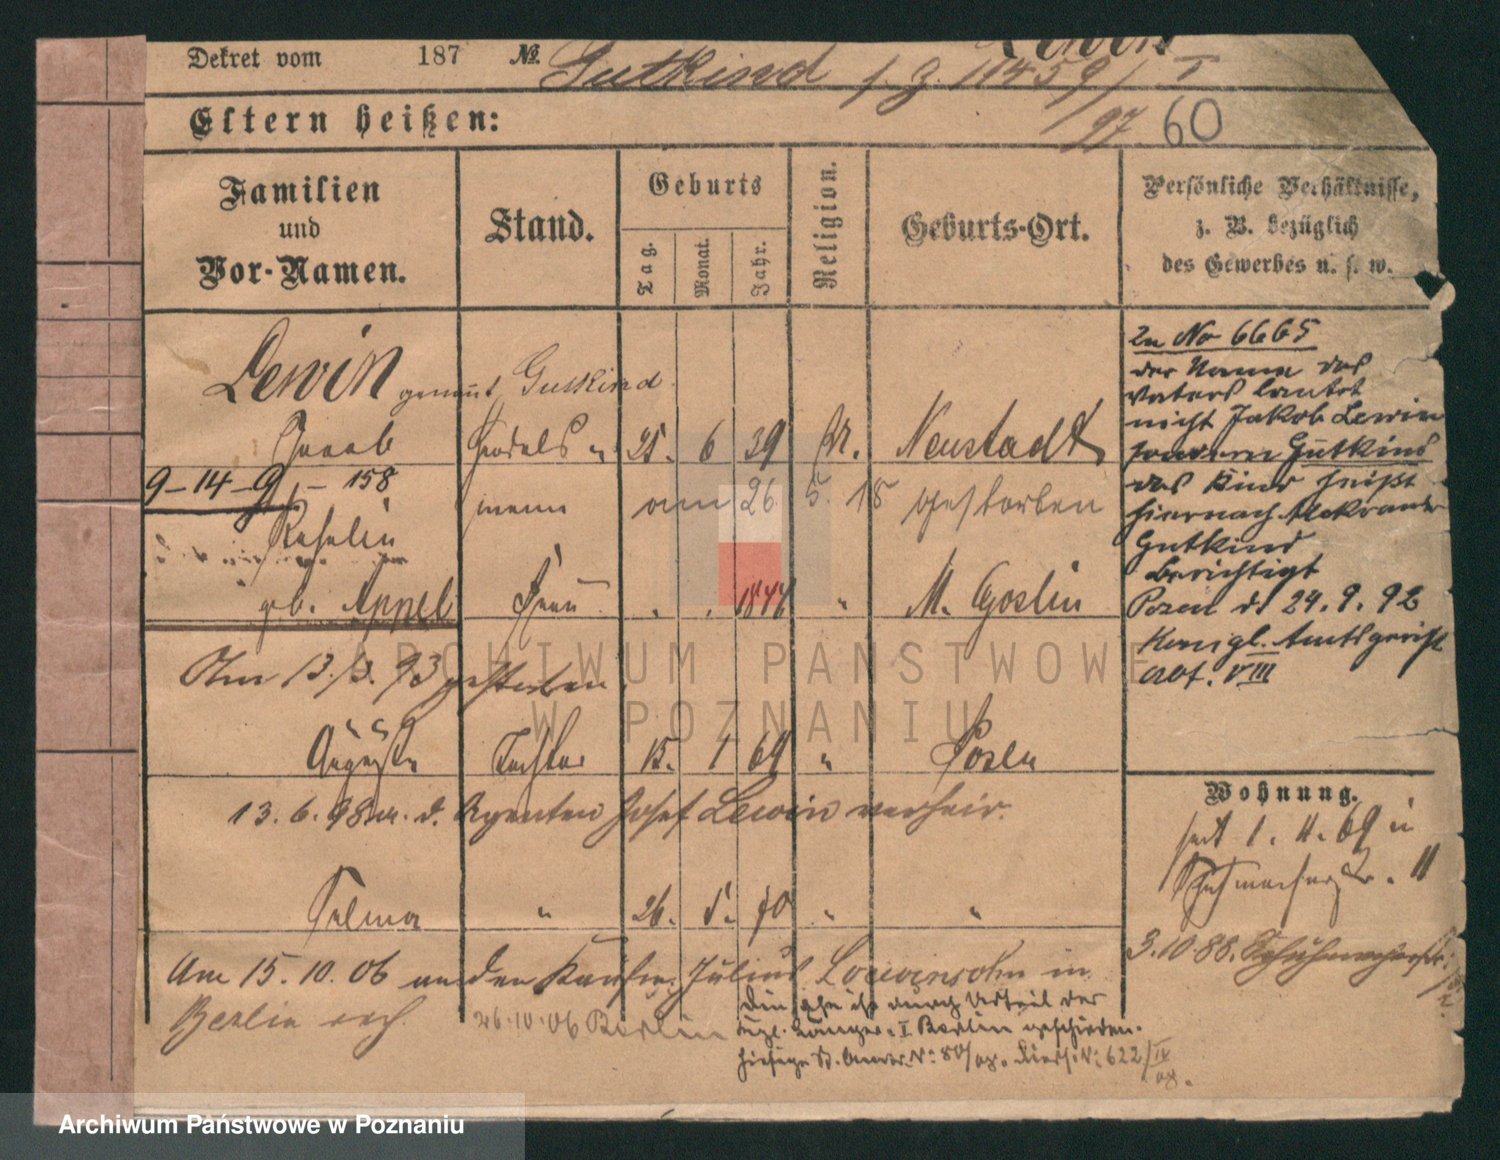 Lewin
Dekret vom 187 № Gutkind f. Z. 11459/I
97 60
Eltern heißen:
Familien
und
Vor-Namen.
Stand.
Geburts
Tag.
Monat.
Jahr.
Religion.
Geburts-Ort.
Persönliche Verhältnisse,
z. B. bezüglich
des Gewerbes u. s. w.
Lewin genannt Gutkind
Jacob Handels 25. 6 39 Neustadt
9-14-9 - 158
mann am 26. 5. 18 gestorben
Rosalie
geb. Appel Frau " " 1844 " M. Goslin
Am 13./3. 93 gestorben.
Auguste Tochter 15. 1 69 " Posen
13. 6. 98 m. d. Agenten Josef Lewin verheir.
Selma " 26. 5. 70 " "
Am 15. 10. 06 an den Kaufm. Julius Loewensohn in
Berlin verh. 26.10.06 Berlin
Die Ehe ist durch Urteil des
Kgl. Landger. I Berlin geschieden.
Zu No 6665
der Name des
Vaters lautet
nicht Jakob Lewin
sondern Gutkind
das Kind heißt
hiernach Alexander
Gutkind
berichtigt
Posen d. 24. 9. 92
Königl. Amtsgericht
Abt. VIII
Wohnung.
seit 1. 4. 69 in
Schuhmacherstr. 11
3.10.88. Schuhmacherstr.
ARCHIWUM PAŃSTWOWE
W POZNANIU
Archiwum Państwowe w Poznaniu